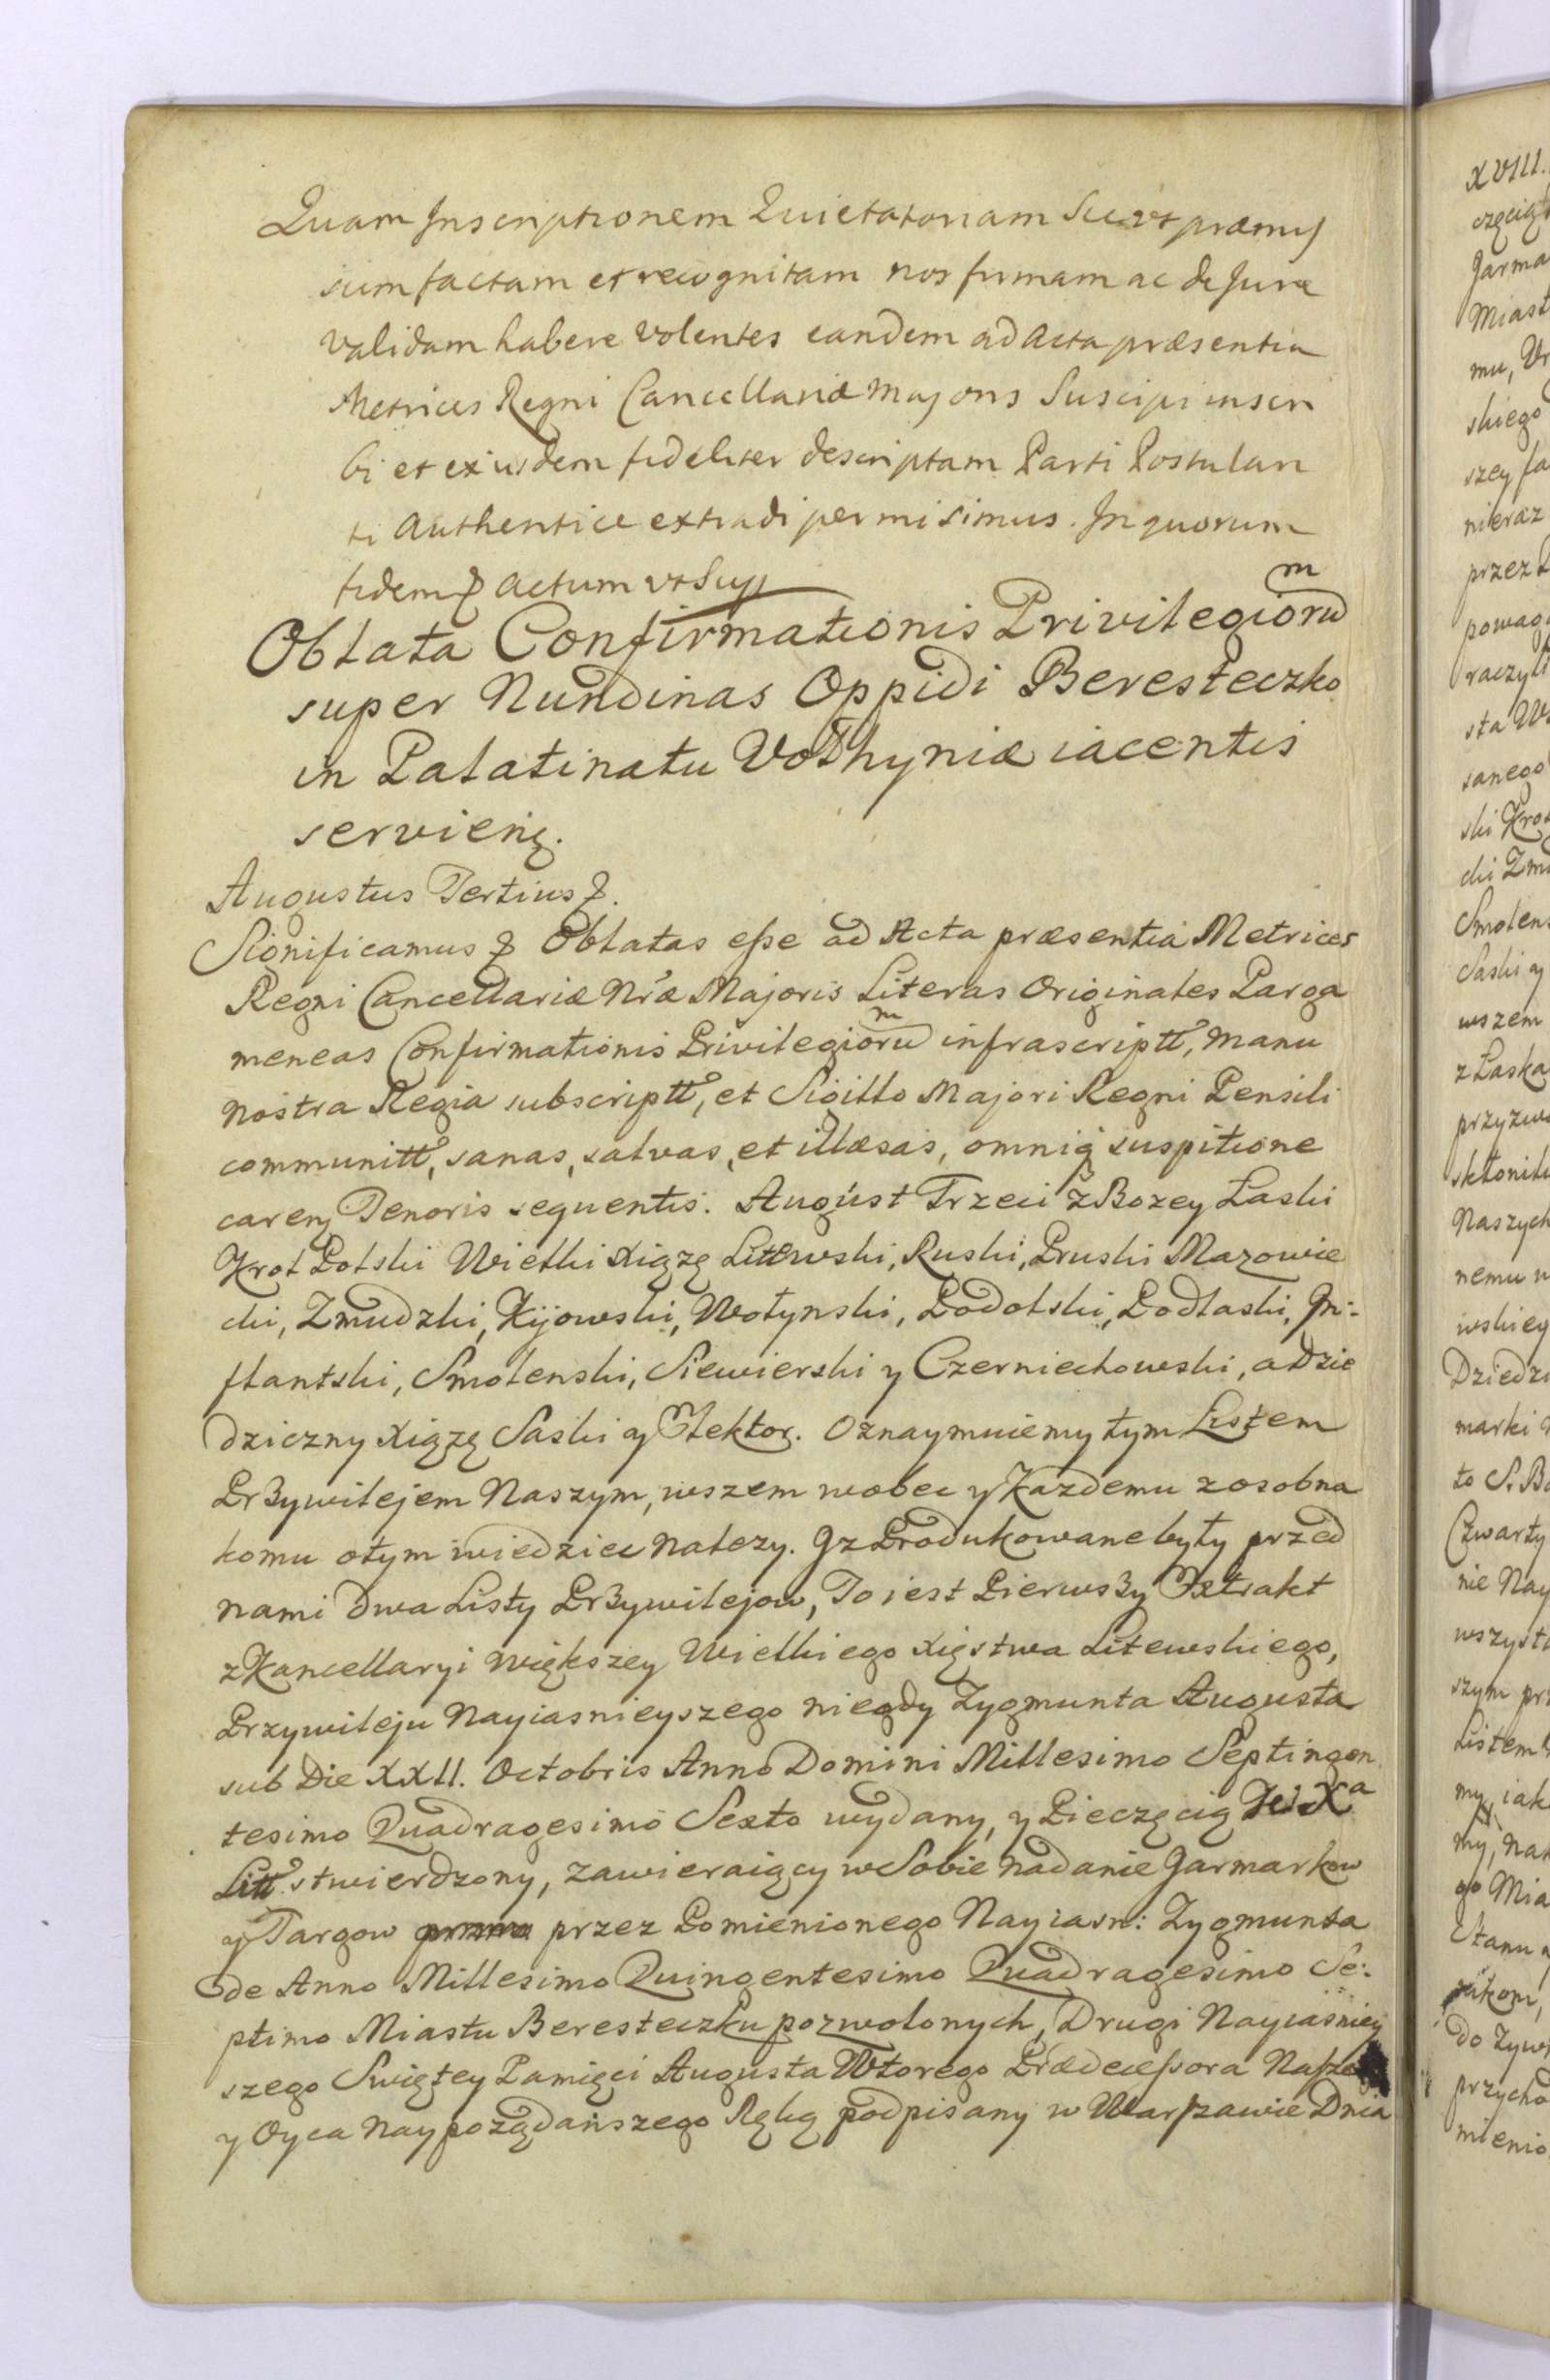 Quam Inscriptionem Quietatoriam Sicut præmis
sum factam et recognitam nos firmam ac de Jure
validam habere volentes eandem ad acta præsentia
Metrices Regni Cancellariæ Majoris Suscipi inscri
bi et ex iisdem fideliter descriptam Parti Postulan
ti Authentice extradi permisimus. In quorum
fidem & Actum ut Sup
Oblata Confirmationis Privilegiorum
super Nundinas Oppidi Beresteczko
in Palatinatu Volhyniæ iacentis
servien̄.
Augustus Tertius &.
Significamus & Oblatas esse ad Acta præsentia Metrices
Regni Cancellariæ Nr̄æ Majoris Literas Originales Parga
meneas Confirmationis Privilegiorum infrascriptt, manu
nostra Regia subscriptt, et Sigillo Majori Regni Pensili
communitt, sanas, salvas, et illæsas, omniq suspitione
caren Tenoris sequentis. August Trzeci z Bozey Łaski
Krol Polski Wielki Xiążę Littwski, Ruski, Pruski Mazowie
cki, Zmudzki, Kijowski, Wołynski, Podolski, Podlaski, In:
flantski, Smolenski, Siewierski y Czerniechowski, a dzie
dziczny Xiążę Saski y Elektor. Oznaymuiemy tym Listem
Przywilejem Naszym, wszem wobec y Kazdemu zosobna
komu otym wiedziec nalezy. Iz Produkowane były przed
nami Dwa Listy Przywilejow, To iest Pierwszy Extrakt
z Kancellaryi większey Wielkiego Xięstwa Litewskiego,
Przywileju Nayiasnieyszego niegdy Zygmunta Augusta
sub Die XXII. Octobris Anno Domini Millesimo Septingen
tesimo Quadragesimo Sexto wydany, y Pieczęcią W. Xa
Litt. stwierdzony, zawieraiący w Sobie nadanie Jarmarkow
y Targow przez Pomienionego Nayiasn: Zygmunta
de Anno Millesimo Quingentesimo Quadragesimo Se:
ptimo Miastu Beresteczku pozwolonych, Drugi Nayiasniey
szego Swiętey Pamięci Augusta Wtorego Prædecessora Nasze
y Oyca naypoządanszego Ręką podpisany w Warszawie Dnia
XVIII.
Jarma
Miast
mu,
skiego
szey
nieraz
przez
powag
raczyli
sta
sanego
ski
cki
Smolen
Saski y
wszem
z Łaska
przyzwo
skłonili
Naszych
nemu
wskiey
Dziedzi
marki
to S.
Czwarty
nie Nay
wszystk
szym
Listem
my, iak
my,
go Mia
Stanu
do
przycho
mienio